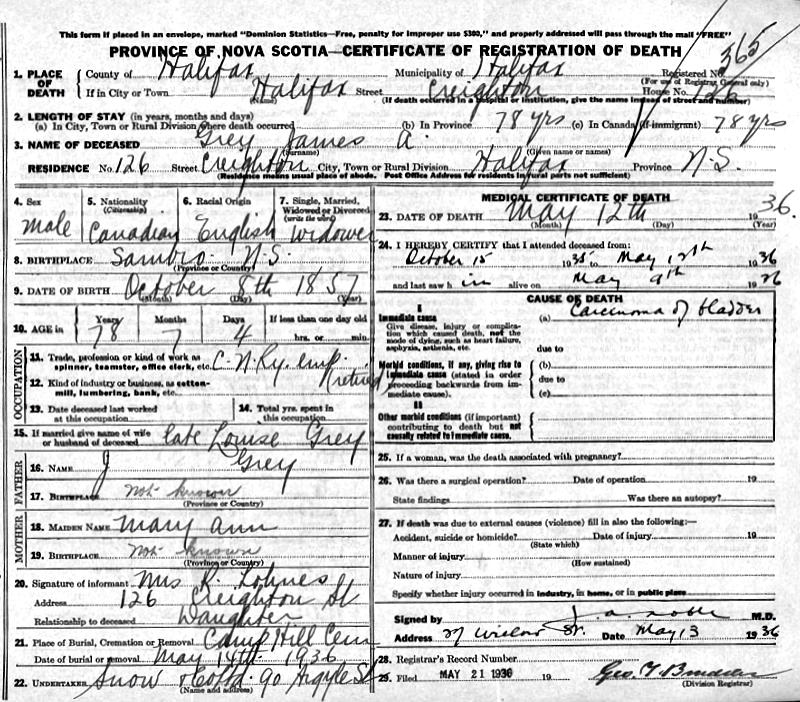 This form if placed in an envelope, marked "Dominion Statistics—Free, penalty for improper use $300," and properly addressed will pass through the mail "FREE"
365
PROVINCE OF NOVA SCOTIA—CERTIFICATE OF REGISTRATION OF DEATH
1. PLACE OF DEATH
County of Halifax Municipality of Halifax Registered No.
(For use of Registrar General only)
If in City or Town Halifax Street Creighton House No. 126
(Name) (If death occurred in a hospital or institution, give the name instead of street and number)
2. LENGTH OF STAY (in years, months and days)
(a) In City, Town or Rural Division where death occurred (b) In Province 78 yrs (c) In Canada (if immigrant) 78 yrs
3. NAME OF DECEASED Grey James A.
(Surname) (Given name or names)
RESIDENCE No. 126 Street Creighton City, Town or Rural Division Halifax Province N.S.
(Residence means usual place of abode. Post Office Address for residents in rural parts not sufficient)
4. Sex
male
5. Nationality
(Citizenship)
Canadian
6. Racial Origin
English
7. Single, Married, Widowed or Divorced
(write the word)
Widower
8. BIRTHPLACE Sambro N.S.
(Province or Country)
9. DATE OF BIRTH October 8th 1857
(Month) (Day) (Year)
10. AGE in
Years Months Days If less than one day old
78 7 4 hrs. or min.
OCCUPATION
11. Trade, profession or kind of work as spinner, teamster, office clerk, etc. C.N.Ry. emp.
(retired)
12. Kind of industry or business, as cotton-mill, lumbering, bank, etc.
13. Date deceased last worked at this occupation
14. Total yrs. spent in this occupation
15. If married give name of wife or husband of deceased late Louise Grey
FATHER
16. NAME J Grey
17. BIRTHPLACE not known
(Province or Country)
MOTHER
18. MAIDEN NAME Mary Ann
19. BIRTHPLACE Not known
(Province or Country)
20. Signature of informant Mrs R. Lohnes
Address 126 Creighton St
Relationship to deceased Daughter
21. Place of Burial, Cremation or Removal Camp Hill Cem
Date of burial or removal May 14th 1936
22. UNDERTAKER Snow & Co Ltd. 90 Argyle St
(Name and address)
MEDICAL CERTIFICATE OF DEATH
23. DATE OF DEATH May 12th 1936.
(Month) (Day) (Year)
24. I HEREBY CERTIFY that I attended deceased from:
October 15 1935 to May 12th 1936
and last saw him alive on May 9th 1936
CAUSE OF DEATH
I
Immediate cause
Give disease, injury or complication which caused death, not the mode of dying, such as heart failure, asphyxia, asthenia, etc.
(a) Carcinoma of bladder
due to
Morbid conditions, if any, giving rise to immediate cause (stated in order proceeding backwards from immediate cause).
(b)
due to
(c)
II
Other morbid conditions (if important) contributing to death but not causally related to immediate cause.
25. If a woman, was the death associated with pregnancy?
26. Was there a surgical operation? Date of operation 19
State findings Was there an autopsy?
27. If death was due to external causes (violence) fill in also the following:—
Accident, suicide or homicide? Date of injury 19
(State which)
Manner of injury
(How sustained)
Nature of injury
Specify whether injury occurred in industry, in home, or in public place
Signed by M.D.
Address 27 St. Date May 13 1936
28. Registrar's Record Number
29. Filed MAY 21 1936 19
(Division Registrar)